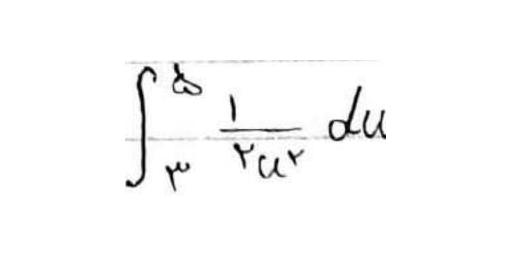 ∫_۳^۵ \frac{۱}{۲u^۲} du